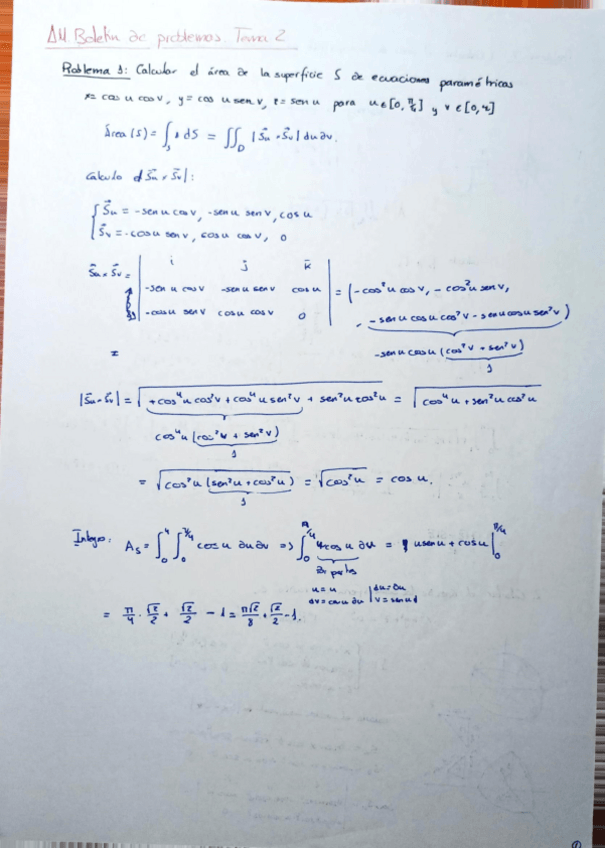 AM Boletín de problemas. Tema 2
Problema 1: Calcular el área de la superficie S de ecuaciones paramétricas
x= cos u cos v, y= cos u sen v, z= sen u para u∈[0, π/4] y v∈[0, u]
Área (S) = ∫_S 1 dS = ∬_D |S⃗u × S⃗v| du dv.
Cálculo |S⃗u × S⃗v|:
S⃗u = -sen u cos v, -sen u sen v, cos u
S⃗v = -cos u sen v, cos u cos v, 0
i j k
S⃗u × S⃗v = | -sen u cos v -sen u sen v cos u | = (-cos²u cos v, -cos²u sen v,
-cos u sen v cos u cos v 0
-sen u cos u cos²v - sen u cos u sen²v)
=
-sen u cos u (cos²v + sen²v)
1
|S⃗u × S⃗v| = √(+cos⁴u cos²v + cos⁴u sen²v + sen²u cos²u) = √(cos⁴u + sen²u cos²u)
cos⁴u (cos²v + sen²v)
1
= √(cos²u (sen²u + cos²u)) = √(cos²u) = cos u.
1
Integro: A_S = ∫₀^u ∫₀^π/4 cos u du dv => ∫₀^π/4 u cos u du = u sen u + cos u |₀^π/4
Por partes
u = u | du = du
dv = cos u du | v = sen u
= π/4 · √2/2 + √2/2 - 1 = π√2/8 + √2/2 - 1.
①